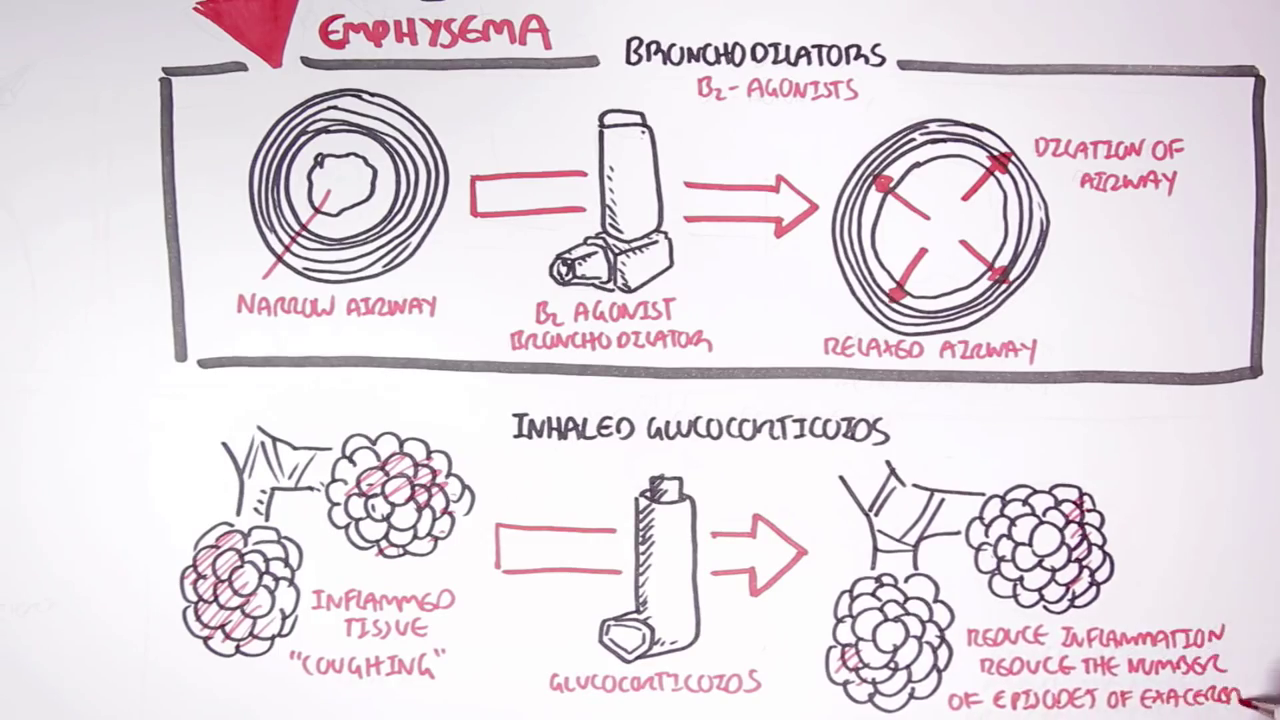 EMPHYSEMA
BRONCHODILATORS
B2-AGONISTS
DILATION OF
AIRWAY
NARROW AIRWAY
B2 AGONIST
BRONCHODILATOR
RELAXED AIRWAY
INHALED GLUCOCORTICOIDS
INFLAMMED
TISSUE
"COUGHING"
GLUCOCORTICOIDS
REDUCE INFLAMMATION
REDUCE THE NUMBER
OF EPISODES OF